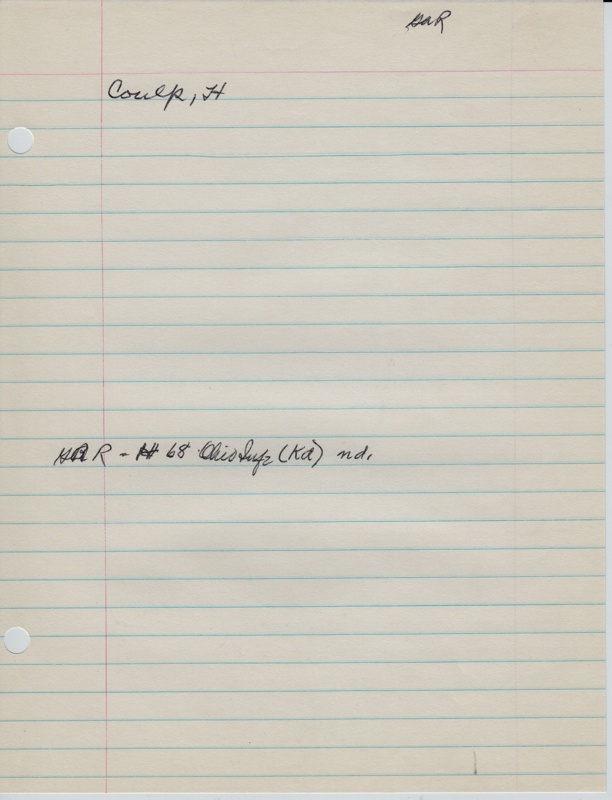 GAR
Coulp, H
GAR - H 68 Ohio Inf (Kd) nd.